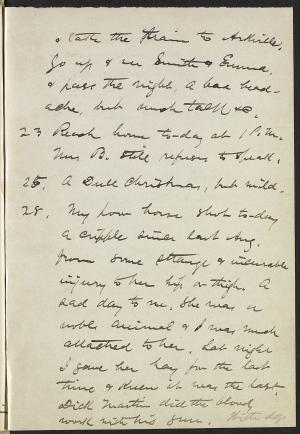 & take the train to Arkville,
go up & see Smith & Emma,
& pass the night. A bad head-
ache, but much talk &c.
23 Reach home to-day at 1 P.M.
Mrs B. still refuses to speak.
25. A Dull Christmas, but mild.
28. My poor horse shot to-day
a cripple since last Aug.
from some strange & incurable
injury to her hip or thigh. A
sad day to me. She was a
noble animal & I was much
attached to her. Last night
I gave her hay for the last
time & knew it was the last.
Dick Martin did the bloody
work with his gun.